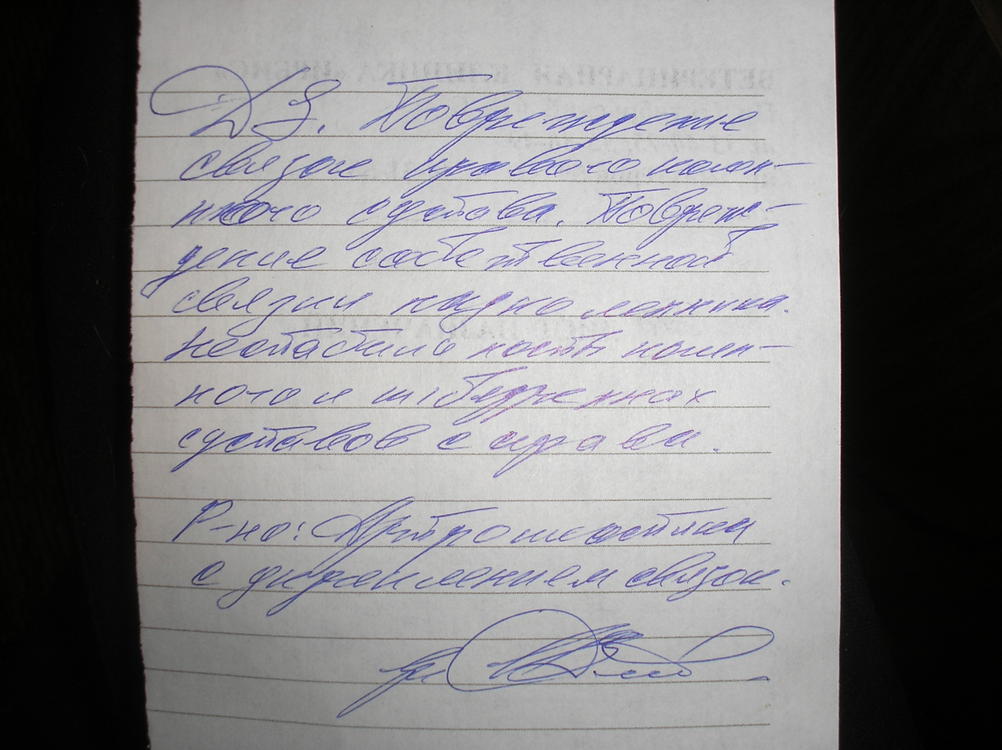 ДЗ. Повреждение
связок правого колен-
ного сустава. Повреж-
дение собственной
связки надколенника.
Нестабильность колен-
ного и т/бедренных
суставов справа.
Р-но: Артропластика
с укреплением связок.
ВЕТЕРИНАРНАЯ КЛИНИКА